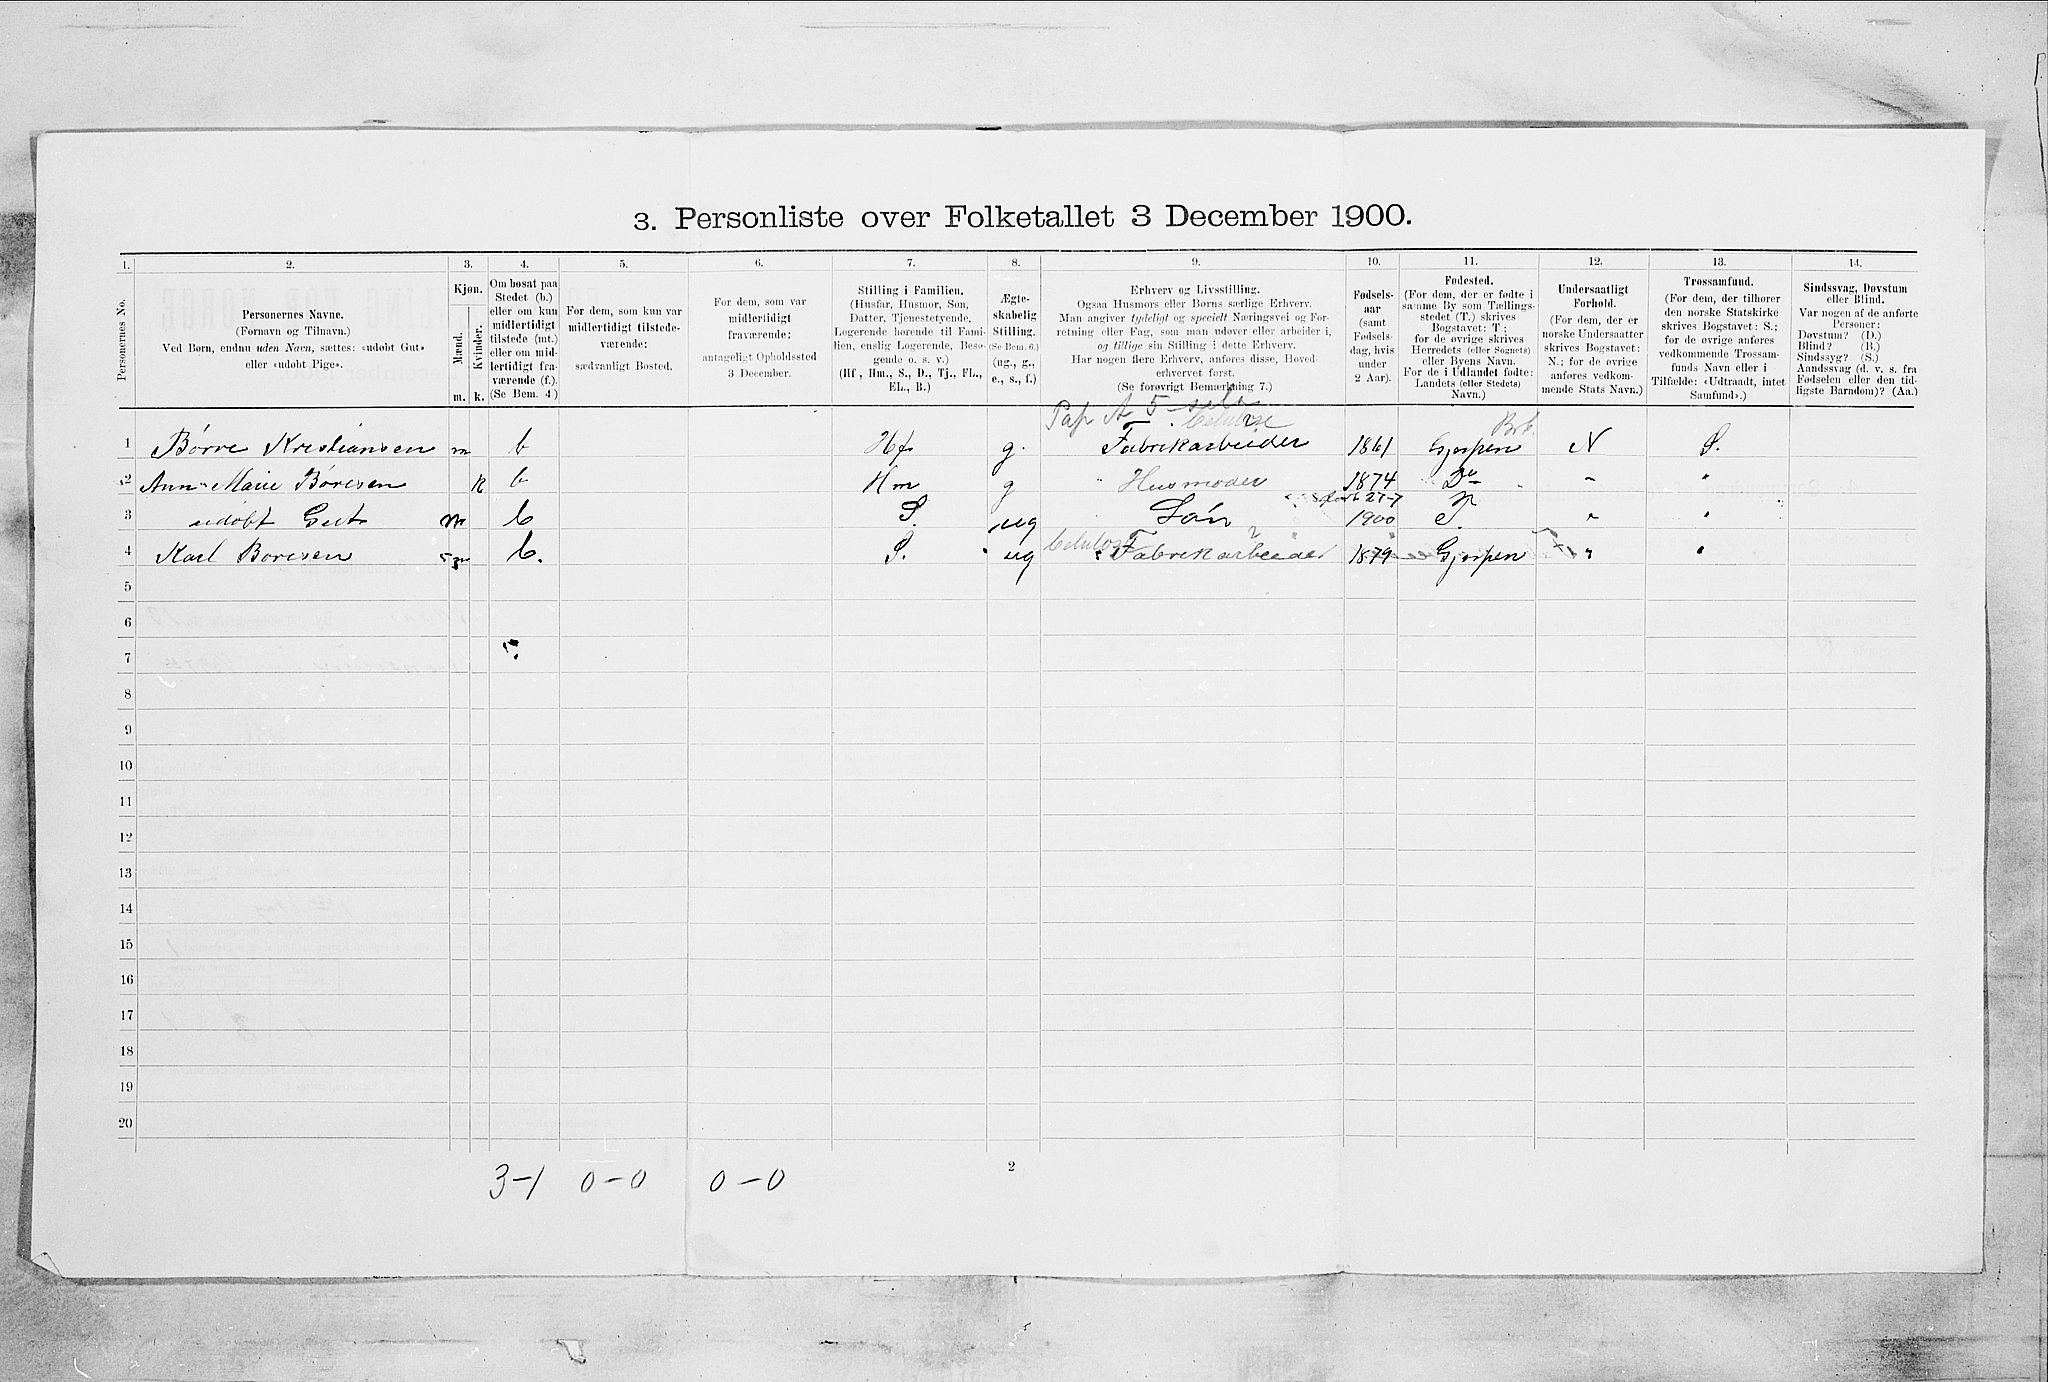 3. Personliste over Folketallet 3 December 1900.
1. 2. 3. 4. 5. 6. 7. 8. 9. 10. 11. 12. 13. 14.
Personernes No.
Personernes Navne.
(Fornavn og Tilnavn.)
Ved Børn, endnu uden Navn, sættes: «udøbt Gut»
eller «udøbt Pige».
Kjøn.
Mænd.
Kvinder.
m. k.
Om bosat paa
Stedet (b.)
eller om kun
midlertidigt
tilstede (mt.)
eller om mid-
lertidigt fra-
værende (f.).
(Se Bem. 4)
For dem, som kun var
midlertidigt tilstede-
værende:
sædvanligt Bosted.
For dem, som var
midlertidigt
fraværende:
antageligt Opholdssted
3 December.
Stilling i Familien.
(Husfar, Husmor, Søn,
Datter, Tjenestetyende,
Logerende hørende til Fami-
lien, enslig Logerende, Besø-
gende o. s. v.)
(Hf , Hm., S., D., Tj., FL.,
EL., B.)
Ægte-
skabelig
Stilling.
(Se Bem. 6.)
(ug., g.,
e., s., f.)
Erhverv og Livsstilling.
Ogsaa Husmors eller Børns særlige Erhverv.
Man angiver tydeligt og specielt Næringsvei og For-
retning eller Fag, som man udøver eller arbeider i,
og tillige sin Stilling i dette Erhverv.
Har nogen flere Erhverv, anføres disse, Hoved-
erhvervet først.
(Se forøvrigt Bemærkning 7.)
Fødsels-
aar
(samt
Fødsels-
dag, hvis
under
2 Aar).
Fødested.
(For dem, der er fødte i
samme By som Tællings-
stedet (T.) skrives
Bogstavet: T;
for de øvrige skrives
Herredets (eller Sognets)
eller Byens Navn.
For de i Udlandet fødte:
Landets (eller Stedets)
Navn.)
Undersaatligt
Forhold.
(For dem, der er
norske Undersaatter
skrives Bogstavet:
N.; for de øvrige
anføres vedkom-
mende Stats Navn.)
Trossamfund.
(For dem, der tilhører
den norske Statskirke
skrives Bogstavet: S.;
for de øvrige anføres
vedkommende Trossam-
funds Navn eller i
Tilfælde: «Udtraadt, intet
Samfund».)
Sindssvag, Døvstum
eller Blind.
Var nogen af de anførte
Personer:
Døvstum? (D.)
Blind? (B.)
Sindssyg? (S.)
Aandssvag (d. v. s. fra
Fødselen eller den tid-
ligste Barndom)? (Aa.)
Pap A 5
1 Børre Kristiansen m b Hf g. Fabrikarbeider 1861 Gjerpen N S.
2 Ann Marie Børresen k b Hm g Husmoder 1874 Do " "
3 udøbt Gut m b S. ug Søn 27-7 1900 T. " "
4 Karl Børesen m b. S. ug Celulose Fabrikarbeider 1879 Gjerpen " "
5
6
7
8
9
10
11
12
13
14
15
16
17
18
19
20
3-1 0-0 0-0
2